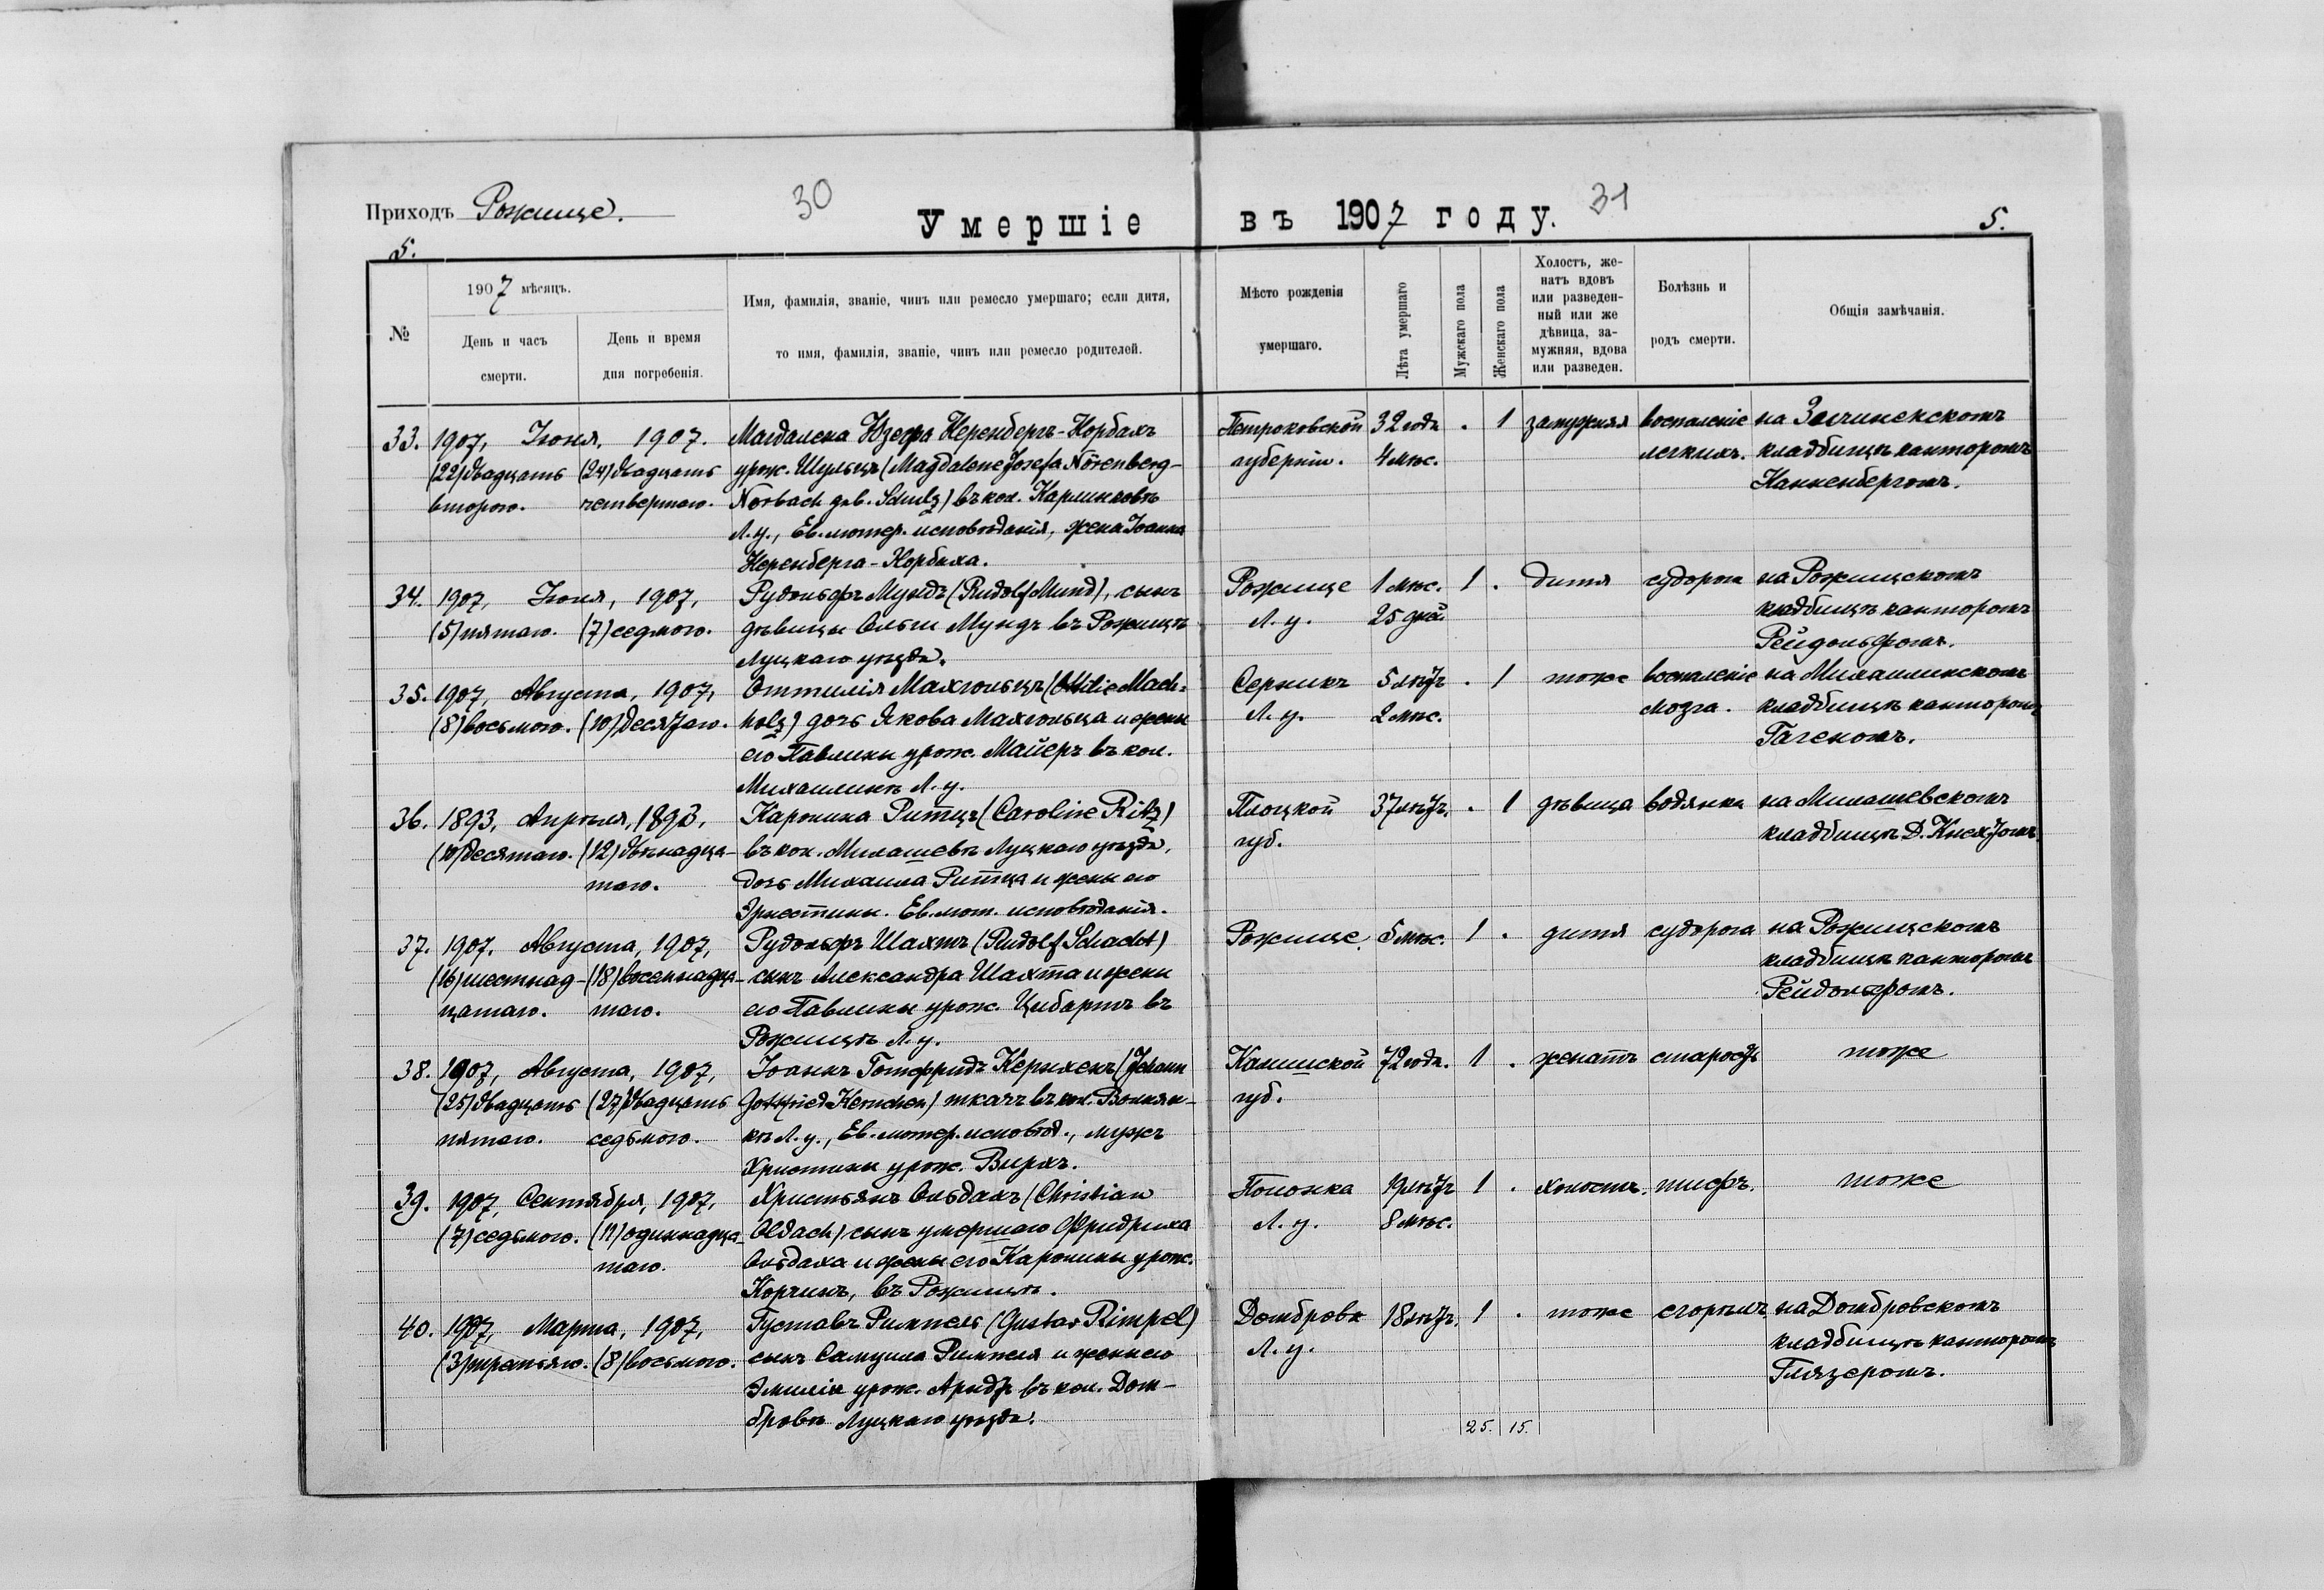 Приходъ Рожище.
30
31
Умершіе въ 1907 году.
5.
5.
№
1907 мѣсяцъ.
День и часъ смерти.
День и время дня погребенія.
Имя, фамилія, званіе, чинъ или ремесло умершаго; если дитя,
то имя, фамилія, званіе, чинъ или ремесло родителей.
Мѣсто рожденія умершаго.
Лѣта умершаго
Мужскаго пола
Женскаго пола
Холостъ, же-
натъ вдовъ
или разведен-
ный или же
дѣвица, за-
мужняя, вдова
или разведен.
Болѣзнь и родъ смерти.
Общія замѣчанія.
33. 1907, Іюня, 1907. Магдалена Юзефа Неренбергъ-Норбахъ Петроковской 32 года . 1 замужняя воспаленіе на
(22) двадцать (24) двадцать урож. Шульцъ (Magdalene Josefa Nörenberg- губерніи. 4 мѣс. легкихъ. кладбищѣ канторомъ
второго. четвертаго. Norbach geb. Schulz) въ кол. Карлинковѣ Канненбергомъ.
Л. у., Ев. лютер. исповѣданія, жена Іоанна
Неренберга-Норбаха.
34. 1907, Іюня, 1907, Рудольфъ Мундъ (Rudolf Mund), сынъ Рожище 1 мѣс. 1 . дитя судорога на Рожищскомъ
(5) пятаго. (7) седмого. дѣвицы Ольги Мундъ въ Рожищѣ Л. у. 25 дней кладбищѣ канторомъ
Луцкаго уѣзда. Рейдольфомъ.
35. 1907, Августа, 1907, Оттилія Махгольцъ (Ottilie Mach= Серникъ 5 лѣтъ . 1 тоже воспаленіе на Михайлинскомъ
(8) восьмого. (10) десятаго. holz) дочь Якова Махгольца и жены Л. у. 2 мѣс. мозга. кладбищѣ канторомъ
его Павлины урож. Майеръ въ кол. Гагеномъ.
Михайлинѣ Л. у.
36. 1893, Апрѣля, 1893, Каролина Ритцъ (Caroline Ritz) Плоцкой 37 лѣтъ. . 1 дѣвица водянка на Милашевскомъ
(10) десятаго. (12) двѣнадца- въ кол. Милашевѣ Луцкаго уѣзда, губ. кладбищѣ Д.
таго. дочь Михаила Ритца и жены его
Эрнестины. Ев. лют. исповѣданія.
37. 1907, Августа, 1907, Рудольфъ Шахтъ (Rudolf Schacht) Рожище. 5 мѣс. 1 . дитя судорога на Рожищскомъ
(16) шестнад- (18) восемнадца- сынъ Александра Шахта и жены кладбищѣ канторомъ
цатаго. таго. его Павлины урож. Цибартъ въ Рейдольфомъ.
Рожищѣ Л. у.
38. 1907, Августа, 1907, Іоаннъ Готфридъ Кернхенъ (Johann Калишской 72 года. 1 . женатъ старость тоже
(25) двадцать (27) двадцать Gottfried Kernchen) ткачъ въ кол. Волнян- губ.
пятаго. седьмого. кѣ Л. у., Ев. лютер. исповѣд., мужъ
Христины урож. Вирхъ.
39. 1907, Сентября, 1907, Христьянъ Ольдахъ (Christian Полонка 19 лѣтъ 1 . холостъ. тифъ. тоже
(7) седьмого. (11) одиннадца- Oldach) сынъ умершаго Фридриха Л. у. 8 мѣс.
таго. Ольдаха и жены его Каролины урож.
Корчинъ, въ Рожищѣ.
40. 1907, Марта, 1907, Густавъ Римпель (Gustav Rimpel) Домброва 18 лѣтъ. 1 . тоже сгорѣлъ на Домбровскомъ
(3) третьяго. (8) восьмого. сынъ Самуила Римпеля и жены его Л. у. кладбищѣ канторомъ
Эмиліи урож. Арндтъ въ кол. Дом- Глязеромъ.
бровѣ Луцкаго уѣзда.
25. 15.